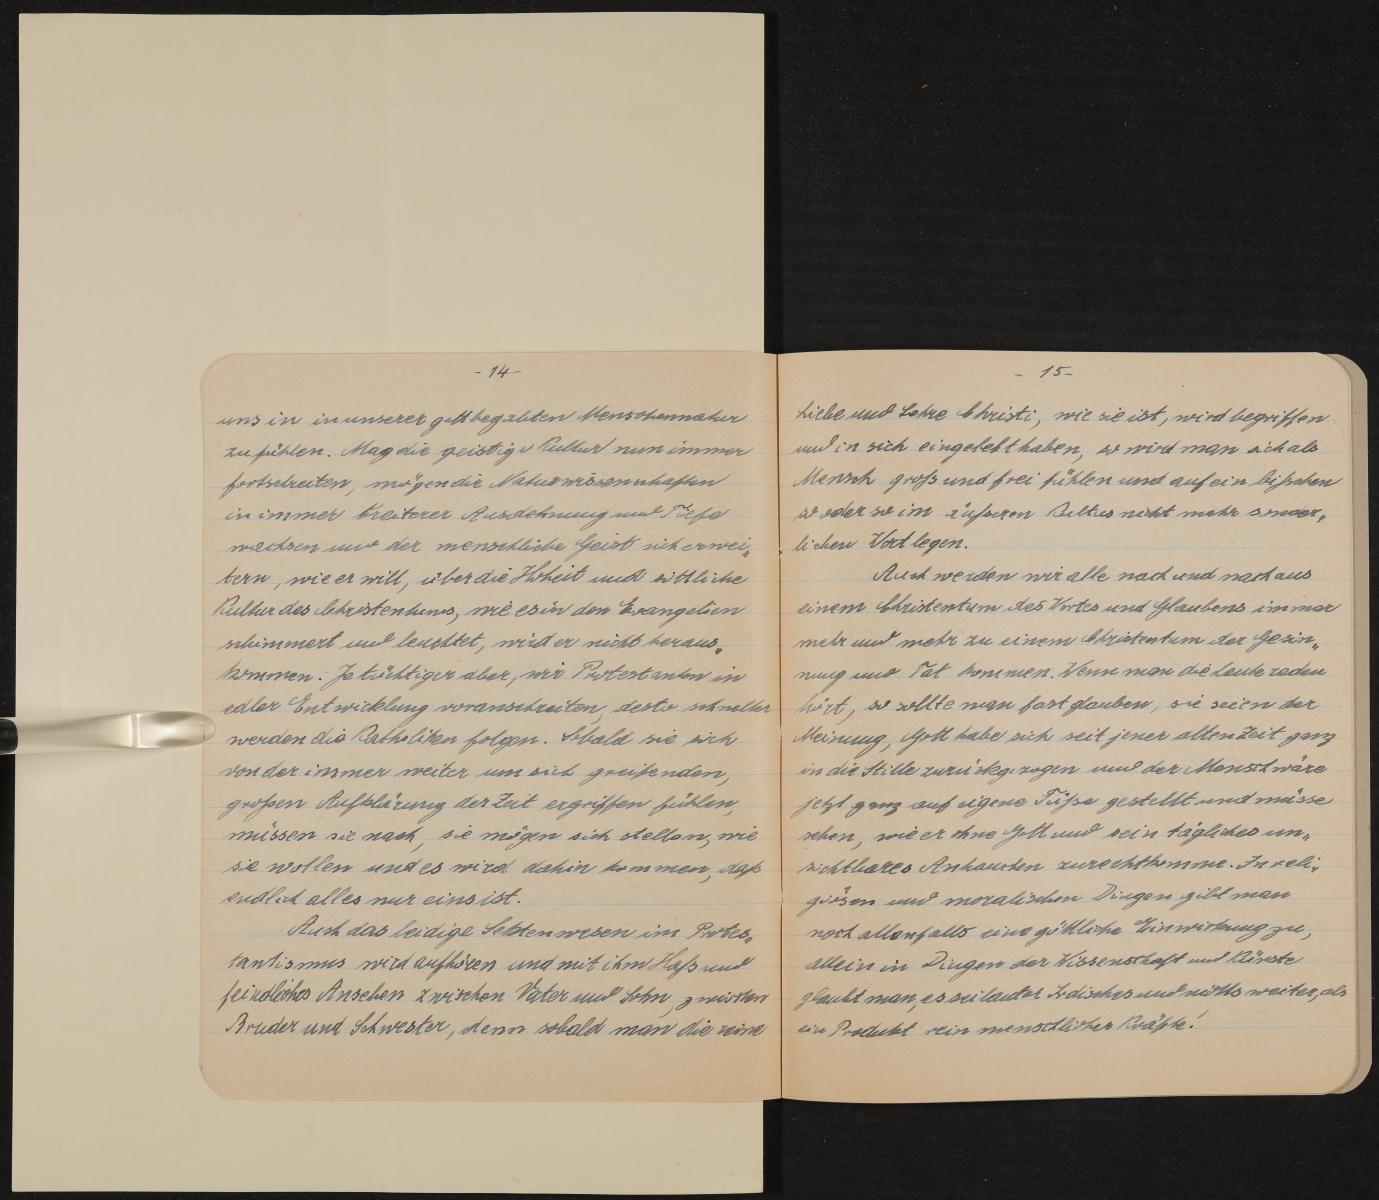 - 14 -
uns in in unserer gottbegabten Menschennatur
zu fühlen. Mag die geistige Kultur nun immer
fortschreiten, mögen die Naturwissenschaften
in immer breiterer Ausdehnung und Tiefe
wachsen und der menschliche Geist sich erwei„
tern, wie er will, über die Hoheit und sittliche
Kultur des Christentums, wie es in den Evangelien
schimmert und leuchtet, wird er nicht heraus„
kommen. Je tüchtiger aber, wir Protestanten in
edler Entwicklung voranschreiten, desto schneller
werden die Katholiken folgen. Sobald sie sich
von der immer weiter um sich greifenden,
großen Aufklärung der Zeit ergriffen fühlen,
müssen sie nach, sie mögen sich stellen, wie
sie wollen und es wird dahin kommen, daß
endlich alles nur eins ist.
Auch das leidige Sektenwesen im Protes„
tantismus wird aufhören und mit ihm Haß und
feindliches Ansehen zwischen Vater und Sohn, zwischen
Bruder und Schwester, denn sobald man die reine
- 15 -
Liebe und Lehre Christi, wie sie ist, wird begriffen
und in sich eingelebt haben, so wird man sich als
Mensch groß und frei fühlen und auf ein bißchen
so oder so im äußeren Kultus nicht mehr sonder„
lichen Wert legen.
Auch werden wir alle nach und nach aus
einem Christentum des Wortes und Glaubens immer
mehr und mehr zu einem Christentum der Gesin„
nung und Tat kommen. Wenn man die Leute reden
hört, so sollte man fast glauben, sie seien der
Meinung, Gott habe sich seit jener alten Zeit ganz
in die Stille zurückgezogen und der Mensch wäre
jetzt ganz auf eigene Füße gestellt und müsse
sehen, wie er ohne Gott und sein tägliches un„
sichtbares Anhauchen zurechtkomme. In reli„
giösen und moralischen Dingen gibt man
noch allenfalls eine göttliche Einwirkung zu,
allein in Dingen der Wissenschaft und Künste
glaubt man, es sei lauter Irdisches und nichts weiter, als
ein Produkt rein menschlicher Kräfte!